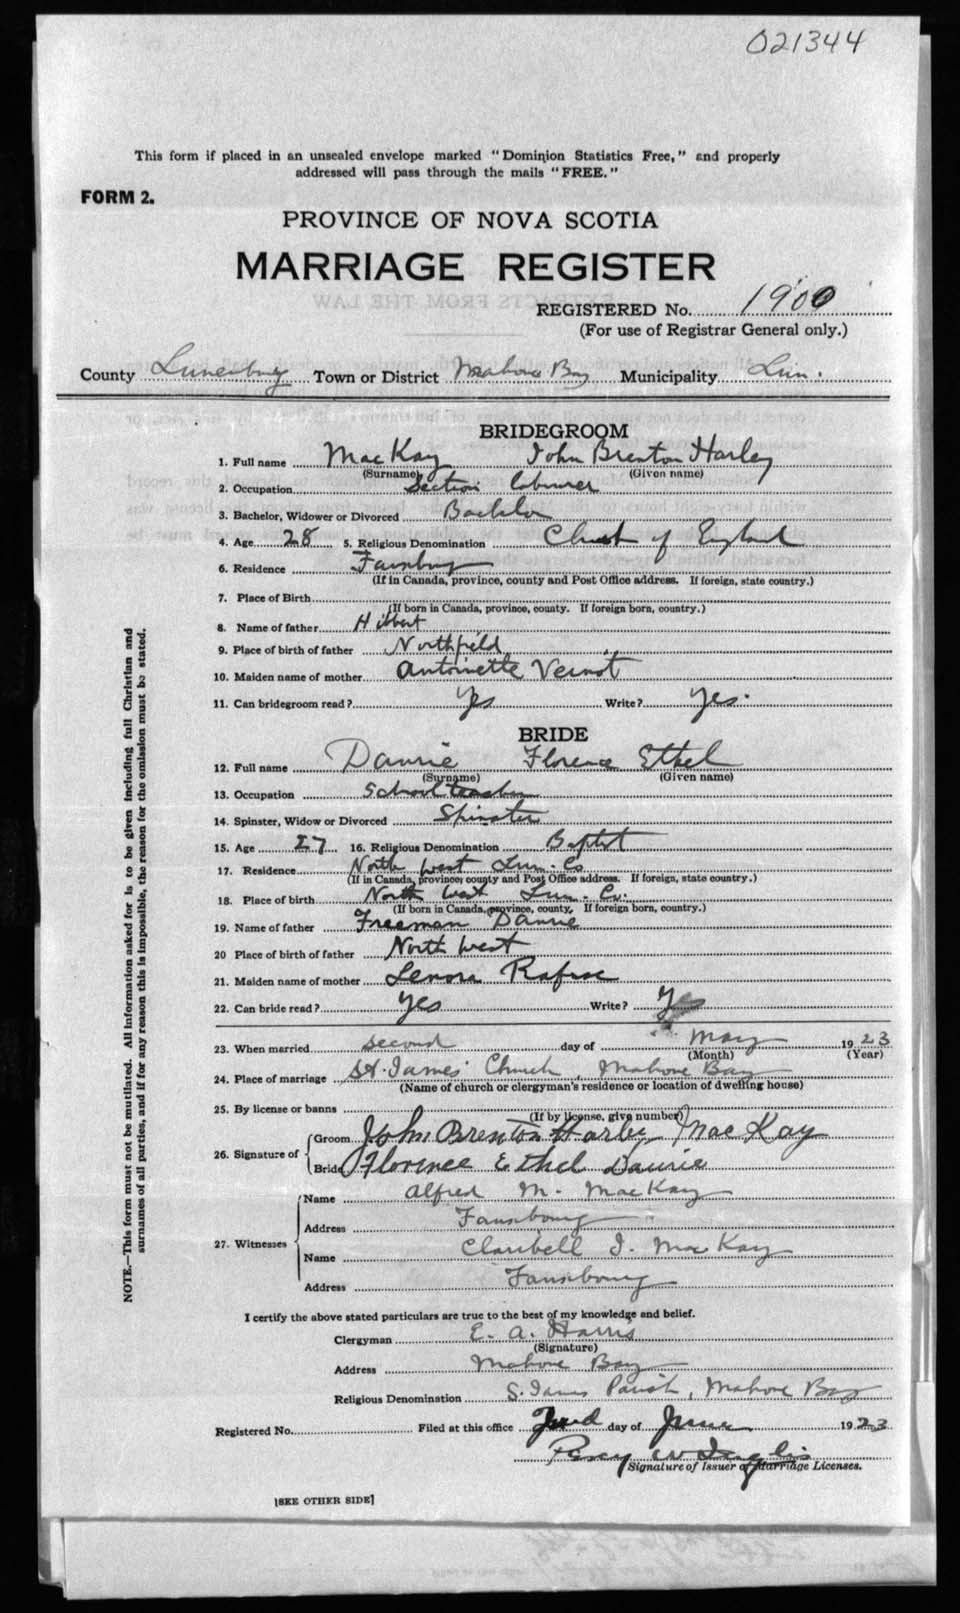 021344
This form if placed in an unsealed envelope marked "Dominion Statistics Free," and properly
addressed will pass through the mails "FREE."
FORM 2.
PROVINCE OF NOVA SCOTIA
MARRIAGE REGISTER
REGISTERED No. 1900
(For use of Registrar General only.)
County Lunenburg Town or District Mahone Bay Municipality Lun.
BRIDEGROOM
1. Full name MacKay John Brenton Harley
(Surname) (Given name)
2. Occupation Section labourer
3. Bachelor, Widower or Divorced Bachelor
4. Age 28 5. Religious Denomination Church of England
6. Residence
(If in Canada, province, county and Post Office address. If foreign, state country.)
7. Place of Birth
(If born in Canada, province, county. If foreign born, country.)
8. Name of father Hibbert
9. Place of birth of father Northfield
10. Maiden name of mother Antoinette Veinot
11. Can bridegroom read? Yes Write? Yes.
BRIDE
12. Full name Daurie Florence Ethel
(Surname) (Given name)
13. Occupation School teacher
14. Spinster, Widow or Divorced Spinster
15. Age 27 16. Religious Denomination Baptist
17. Residence North West Lun. Co
(If in Canada, province, county and Post Office address. If foreign, state country.)
18. Place of birth North West Lun. Co.
(If born in Canada, province, county. If foreign born, country.)
19. Name of father Freeman Daurie
20 Place of birth of father North West
21. Maiden name of mother Lenora Rafuse
22. Can bride read? Yes Write? Yes
23. When married second day of May 1923
(Month) (Year)
24. Place of marriage St. James' Church, Mahone Bay
(Name of church or clergyman's residence or location of dwelling house)
25. By license or banns
(If by license, give number)
26. Signature of Groom John Brenton Harley MacKay
Bride Florence Ethel Daurie
27. Witnesses Name Alfred M. MacKay
Address
Name Claribell I. MacKay
Address
I certify the above stated particulars are true to the best of my knowledge and belief.
Clergyman E. A. Harris
(Signature)
Address Mahone Bay
Religious Denomination S. James Parish, Mahone Bay
Registered No. Filed at this office day of June 1923
Percy W Inglis
Signature of Issuer of Marriage Licenses.
[SEE OTHER SIDE]
NOTE.—This form must not be mutilated. All information asked for is to be given including full Christian and
surnames of all parties, and if for any reason this is impossible, the reason for the omission must be stated.